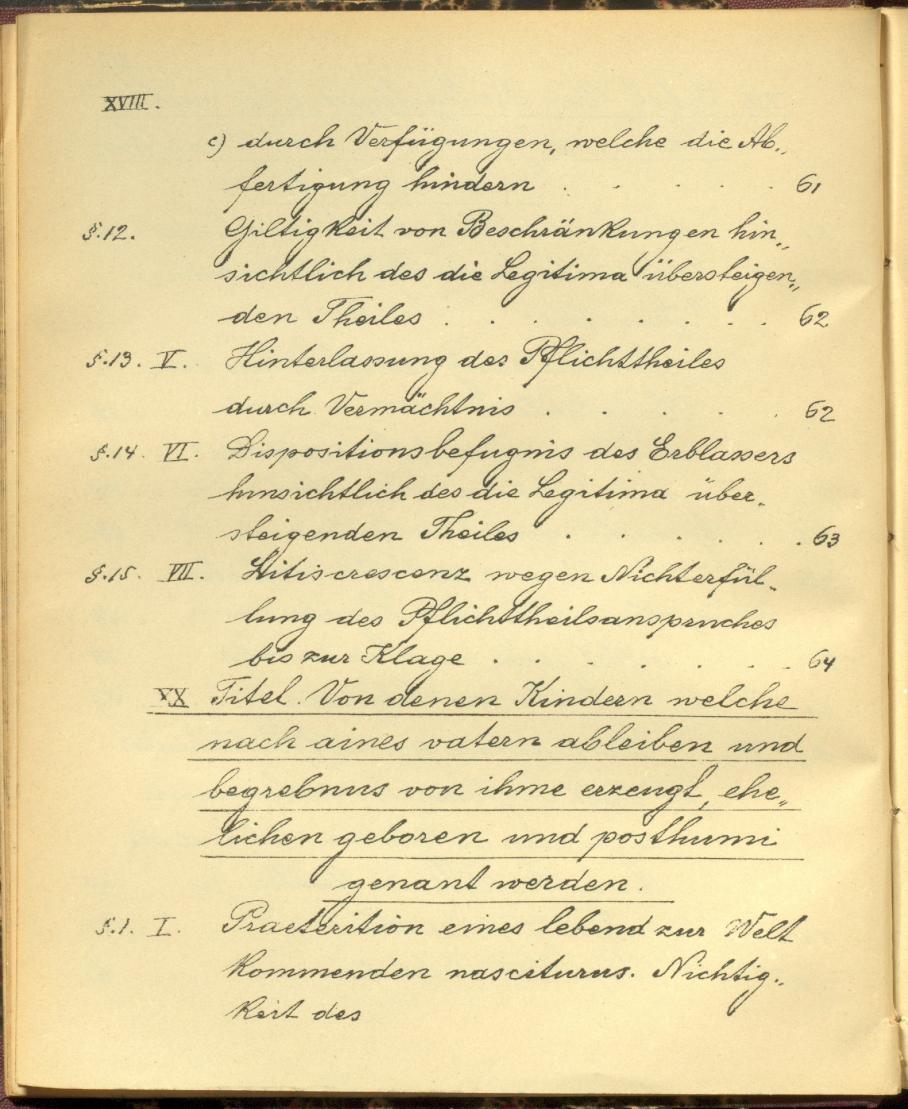 XVIII.
c) durch Verfügungen, welche die Ab„
fertigung hindern . . . . . . 61
§.12. Giltigkeit von Beschränkungen hin„
sichtlich des die Legitima übersteigen„
den Theiles . . . . . . . . 62
§.13. V. Hinterlassung des Pflichttheiles
durch Vermächtnis . . . . . 62
§.14. VI. Dispositionsbefugnis des Erblassers
hinsichtlich des die Legitima über„
steigenden Theiles . . . . . . 63
§.15. VII. Litiscrescenz wegen Nichterfül„
lung des Pflichttheilsanspruches
bis zur Klage . . . . . . . 64
XX Titel. Von denen Kindern welche
nach aines vatern ableiben und
begrebnus von ihme erzeugt, ehe„
lichen geboren und posthumi
genant werden.
§.1. I. Praeterition eines lebend zur Welt
kommenden nasciturus. Nichtig„
keit des